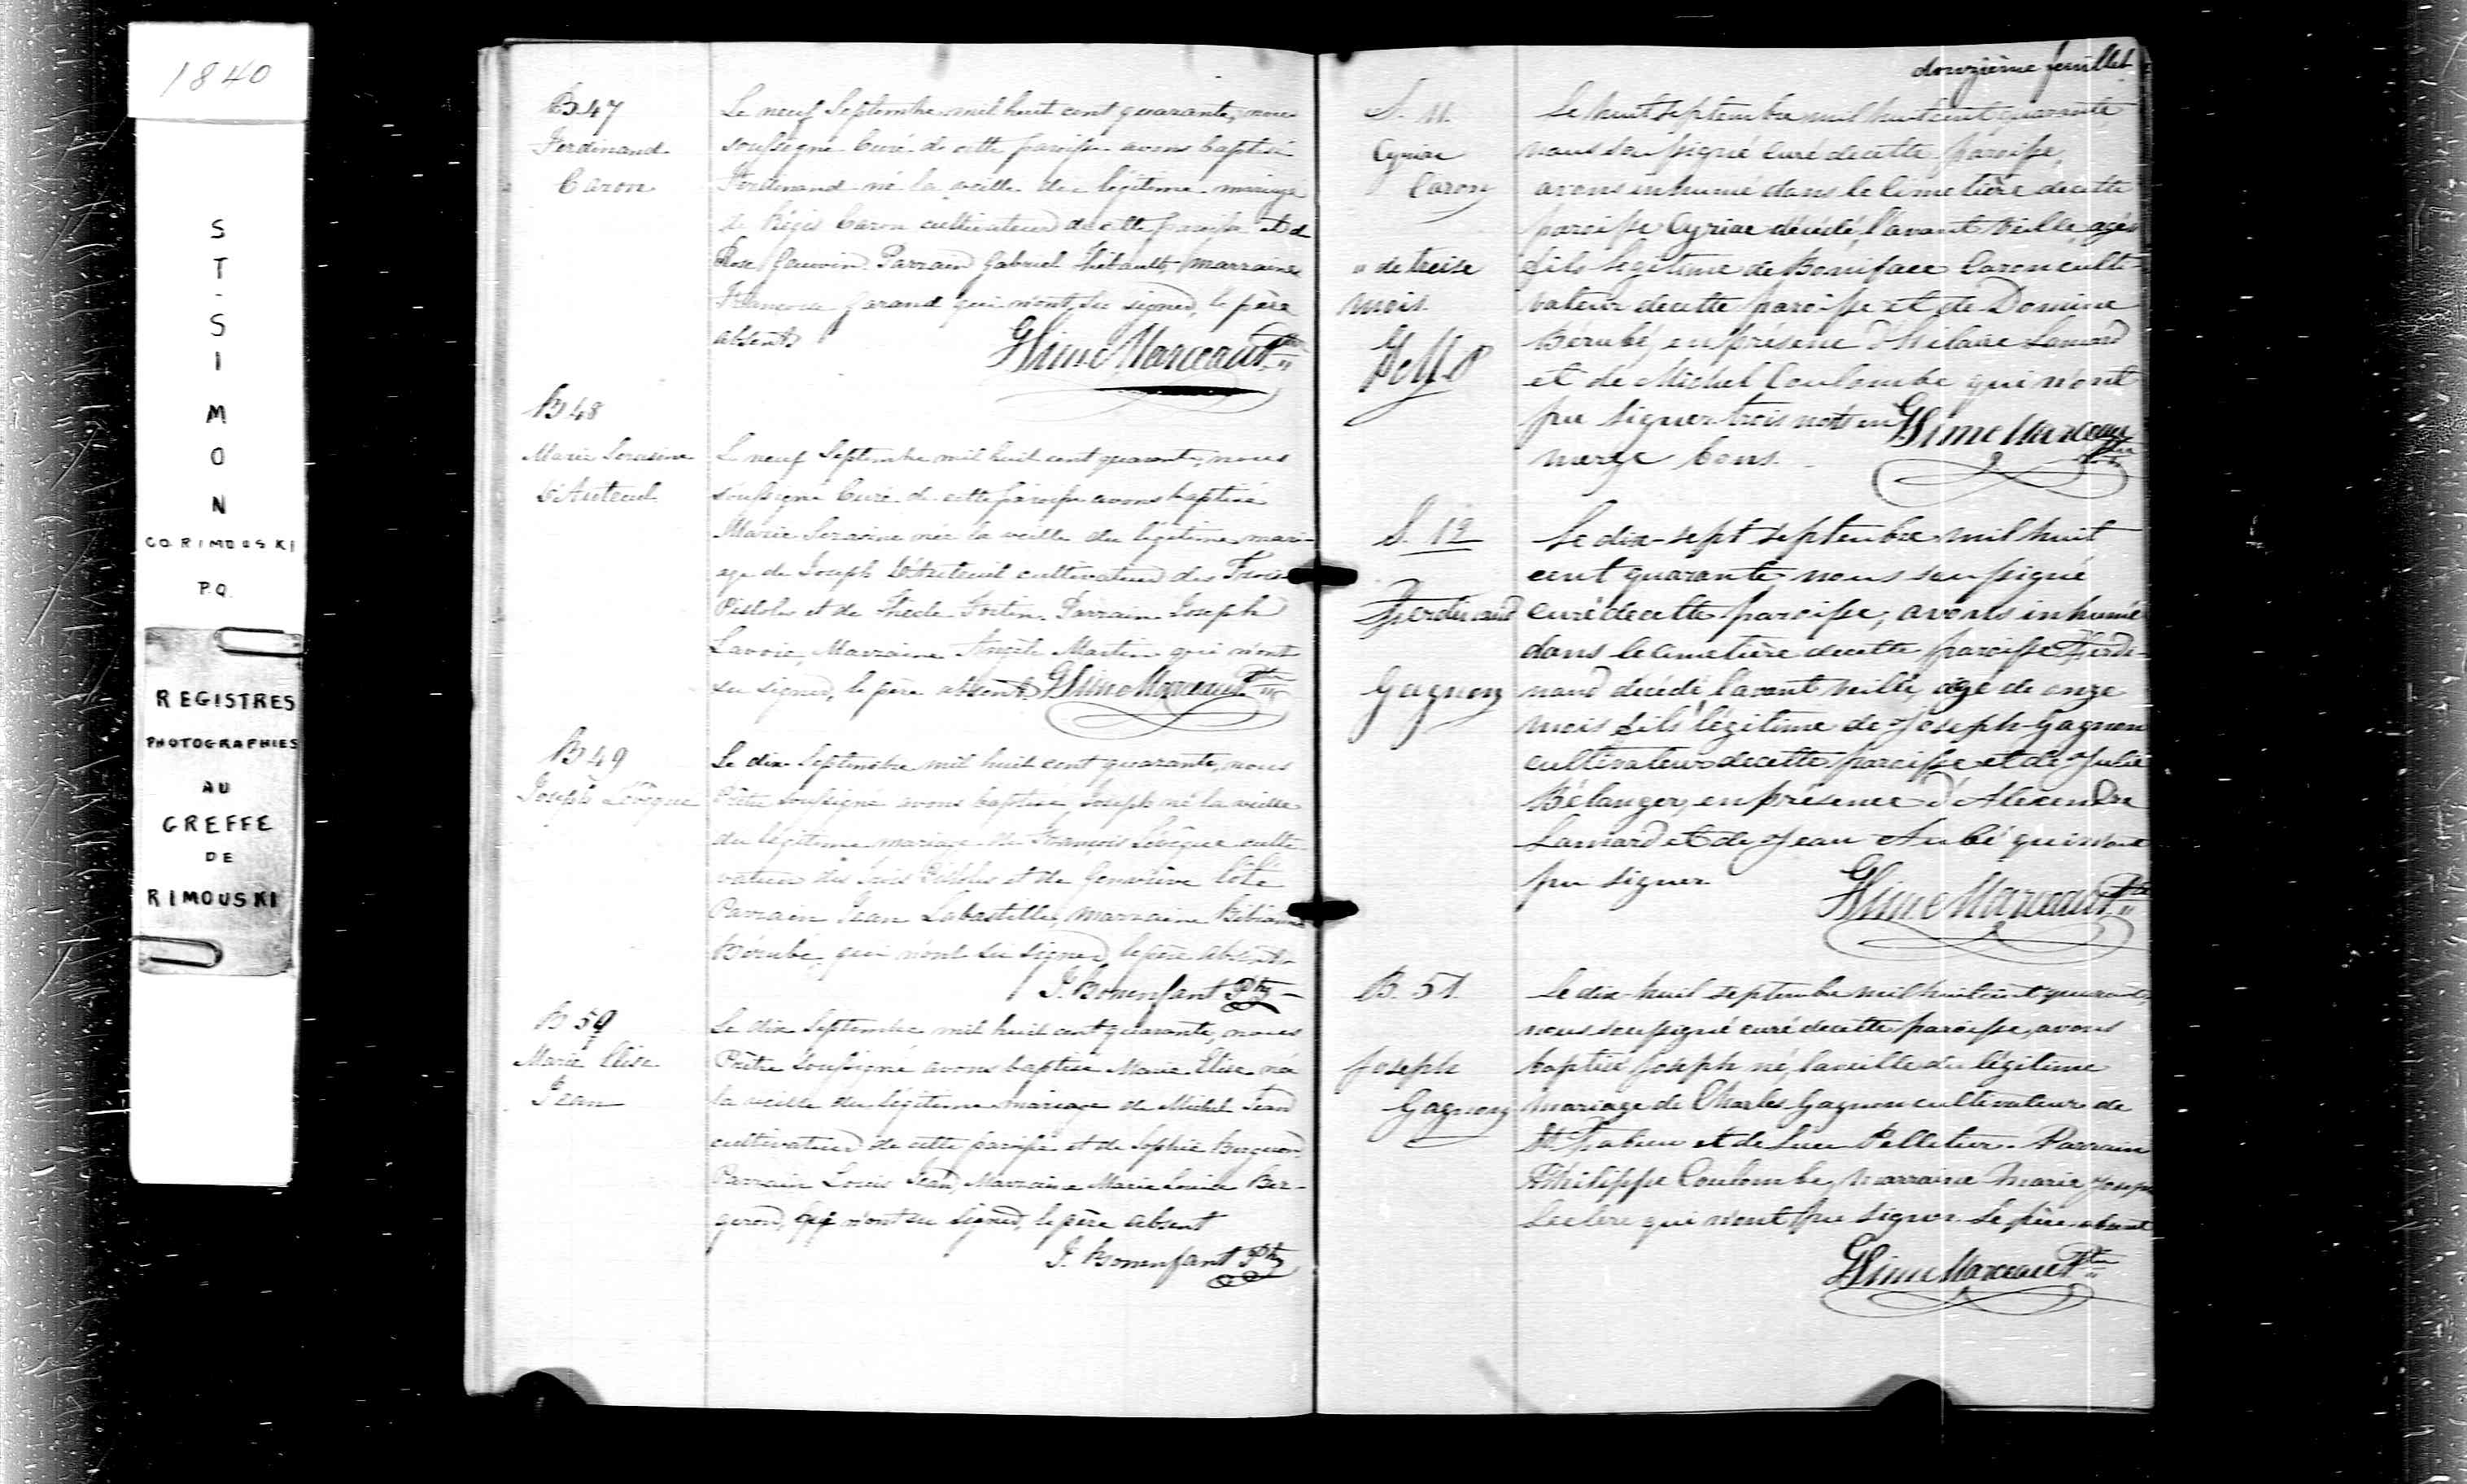 1840
ST-SIMON
CO. RIMOUSKI
P.Q.
REGISTRES
PHOTOGRAPHIES
AU
GREFFE
DE
RIMOUSKI
B 47
Ferdinand
Caron
Le neuf Septembre mil huit cent quarante, nous
soussigné Curé de cette paroisse avons baptisé
Ferdinand né la veille du légitime mariage
de Régis Caron cultivateur de cette paroisse et de
Rose Gauvin. Parrain Gabriel Thibault, marraine
Françoise Garand qui n'ont su signer, le père
absent
GSime Marceau Ptre
B 48
Marie
D'Auteuil
Le neuf Septembre mil huit cent quarante, nous
soussigné Curé de cette paroisse avons baptisé
Marie née la veille du légitime mari-
age de Joseph D'Auteuil cultivateur des Trois
Pistoles et de Thecle Fortin. Parrain Joseph
Lavoie, Marraine Angèle Martin qui n'ont
su signer, le père absent. GSime Marceau Ptre
B 49
Joseph Lévêque
Le dix Septembre mil huit cent quarante, nous
Prêtre soussigné avons baptisé Joseph né la veille
du légitime mariage de François Lévêque culti-
vateur des Trois Pistoles et de Geneviève Côté
Parrain Jean Labastille, marraine Bibianne
Bérubé, qui n'ont su signer, le père absent
J. Bonenfant Ptre
B 50
Marie Elise
Jean
Le dix Septembre mil huit cent quarante, nous
Prêtre soussigné avons baptisé Marie Elise née
la veille du légitime mariage de Michel Jean
cultivateur de cette paroisse et de Sophie Bergeron
Parrain Louis Jean, Marraine Marie Louise Ber-
geron, qui n'ont su signer, le père absent
J. Bonenfant Ptre
douzième feuillet
S. 11.
Cyriac
Caron
" de treise
mois
Le huit septembre mil huit cent quarante
nous soussigné curé de cette paroisse,
avons inhumé dans le cimetière de cette
paroisse Cyriac décédé l'avant veille, agés
fils légitime de Boniface Caron culti-
vateur de cette paroisse et de Domine
Bérubé, en présence d'Hilaire Lamard
et de Michel Coulombe qui n'ont
pu signer trois mots en GSime Marceau Ptre
marge bons.
S. 12
Ferdinand
Gagnon
Le dix-sept septembre mil huit
cent quarante, nous soussigné
curé de cette paroisse, avons inhumé
dans le cimetière de cette paroisse Ferdi-
nand décédé l'avant veille, agé de onze
mois fils légitime de Joseph Gagnon
cultivateur de cette paroisse et de Julie
Bélanger, en présence d'Alexendre
Lamard et de Jean Aubé qui n'ont
pu signer.
GSime Marceau Ptre
B. 51.
Joseph
Gagnon
Le dix-huit septembre mil huit cent quarante
nous soussigné curé de cette paroisse, avons
baptisé Joseph né, la veille du légitime
mariage de Charles Gagnon cultivateur de
St Fabien et de Luce Pelletier. Parrain
Philippe Coulombe, marraine Marie Josephe
Leclerc qui n'ont pu signer. Le père absent
GSime Marceau Ptre